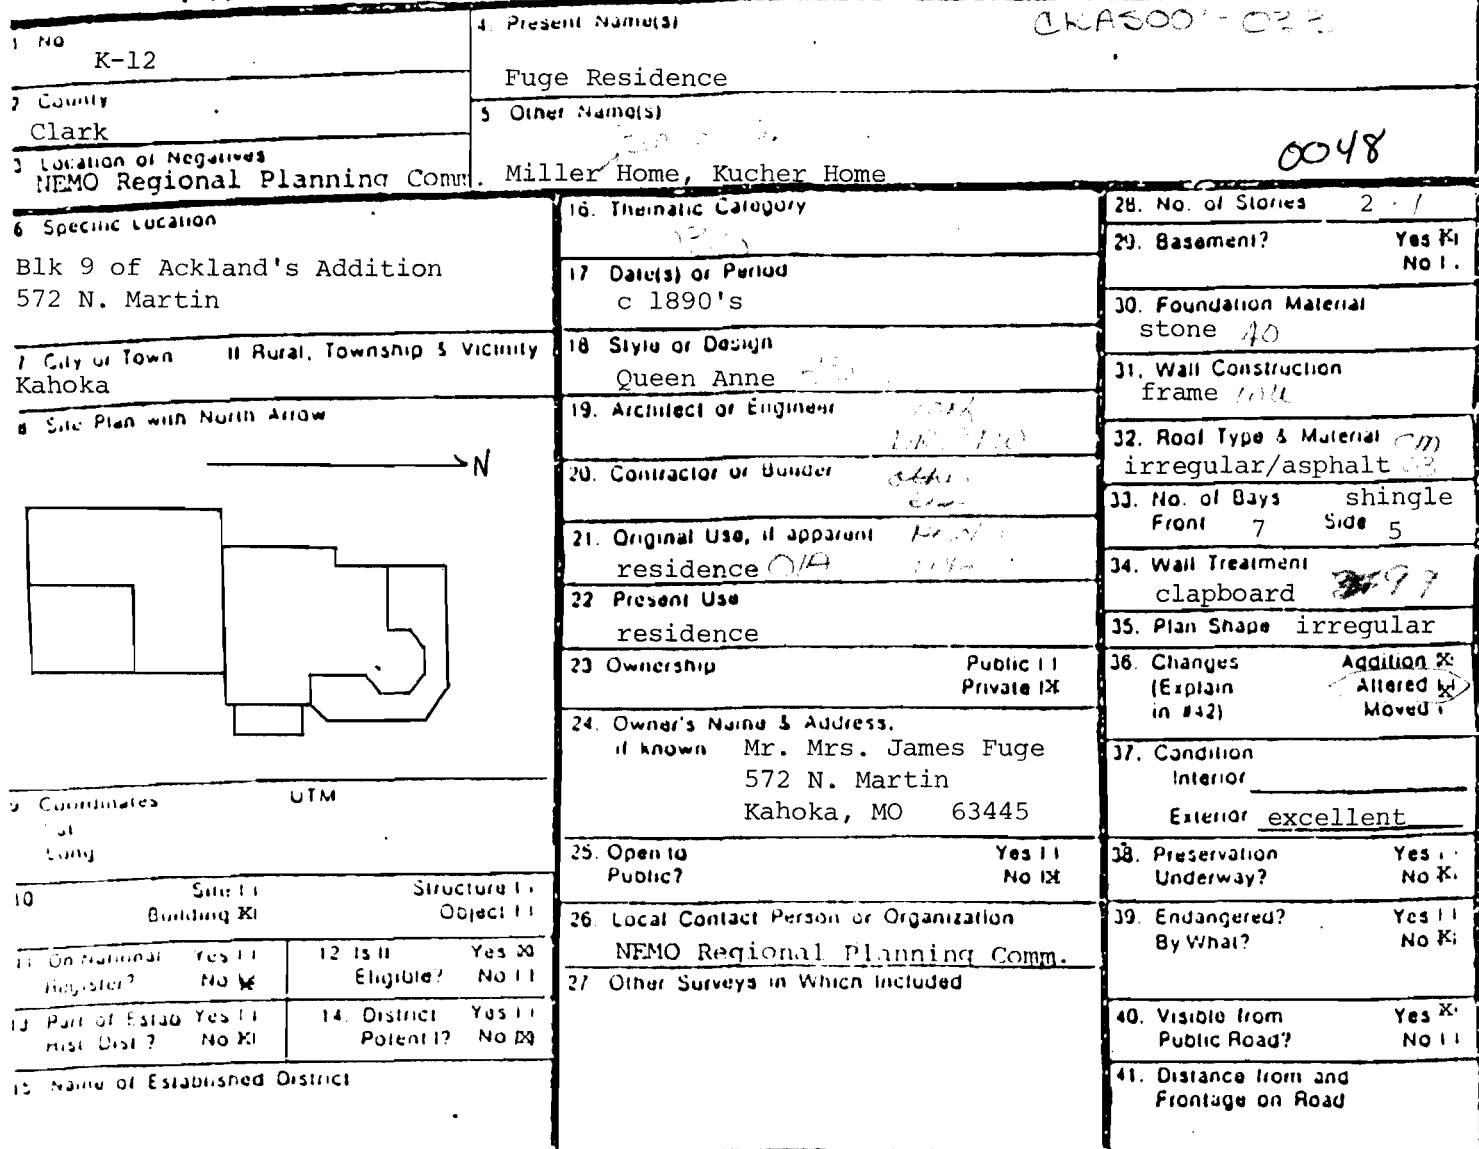 1 No
K-12
2 County
Clark
3 Location of Negatives
NEMO Regional Planning Comm.
4. Present Name(s)
Fuge Residence
5 Other Name(s)
Miller Home, Kucher Home
0048
6 Specific Location
Blk 9 of Ackland's Addition
572 N. Martin
7 City or Town If Rural, Township & Vicinity
Kahoka
8 Site Plan with North Arrow
N
9 Coordinates UTM
Lat
Long
10 Site Structure
Building X Object
11 On National Yes
Register? No X
12 Is It Yes X
Eligible? No
13 Part of Estab Yes
Hist Dist? No X
14. District Yes
Potent'l? No X
15 Name of Established District
16. Thematic Category
17 Date(s) or Period
c 1890's
18 Style or Design
Queen Anne
19. Architect or Engineer
20. Contractor or Builder
21. Original Use, if apparent
residence O/A
22 Present Use
residence
23 Ownership Public
Private X
24. Owner's Name & Address,
if known Mr. Mrs. James Fuge
572 N. Martin
Kahoka, MO 63445
25. Open to Yes
Public? No X
26. Local Contact Person or Organization
NEMO Regional Planning Comm.
27 Other Surveys in Which Included
28. No. of Stories 2
29. Basement? Yes X
No
30. Foundation Material
stone 40
31. Wall Construction
frame
32. Roof Type & Material
irregular/asphalt
shingle
33. No. of Bays
Front 7 Side 5
34. Wall Treatment
clapboard
35. Plan Shape irregular
36. Changes Addition X
(Explain Altered X
in #42) Moved
37. Condition
Interior
Exterior excellent
38. Preservation Yes
Underway? No X
39. Endangered? Yes
By What? No X
40. Visible from Yes X
Public Road? No
41. Distance from and
Frontage on Road